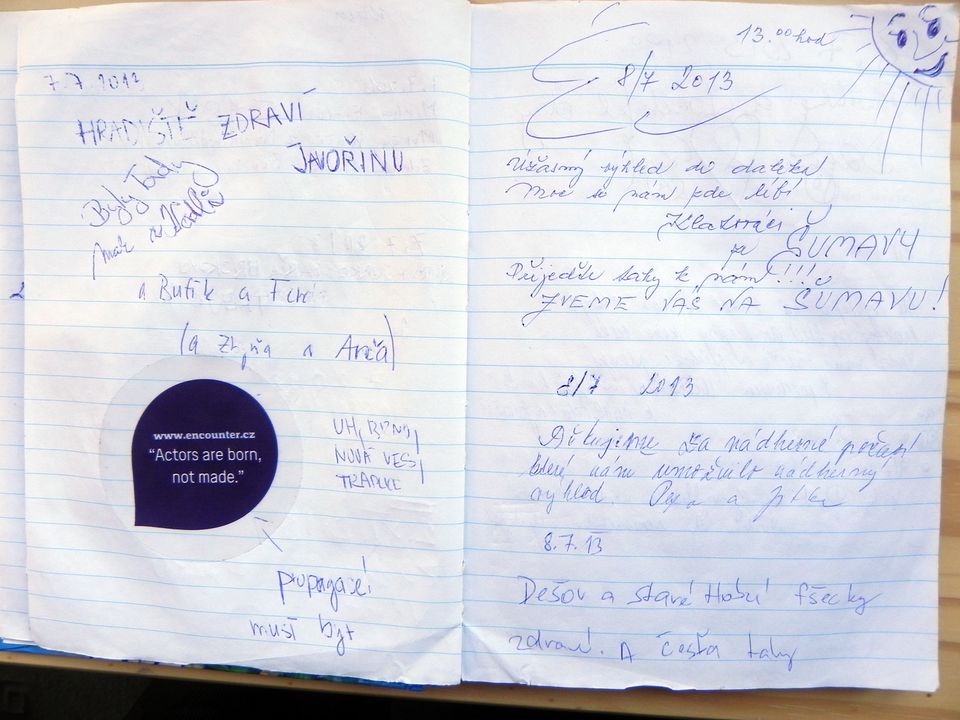 7.7 2013
HRADIŠTĚ ZDRAVÍ
JAVOŘINU
Byly Tady
a Buřík a Ferí
(a a Anča)
www.encounter.cz
“Actors are born,
not made.”
UH, BROD,
NOVÁ VES,
propagací
musí být
13.00 hod
8/7 2013
Úžasný výhled do daleka
Moc se nám zde líbí
Klatováci
ze ŠUMAVY
Přijeďte taky k nám!!!!
ZVEME VÁS NA ŠUMAVU!
8/7 2013
Děkujeme za nádherné počasí
které nám umožnilo nádherný
výhled. Pepa a Jitka
8.7.13
Dešov a staré Hobzí fšecky
zdraví. A češťa taky